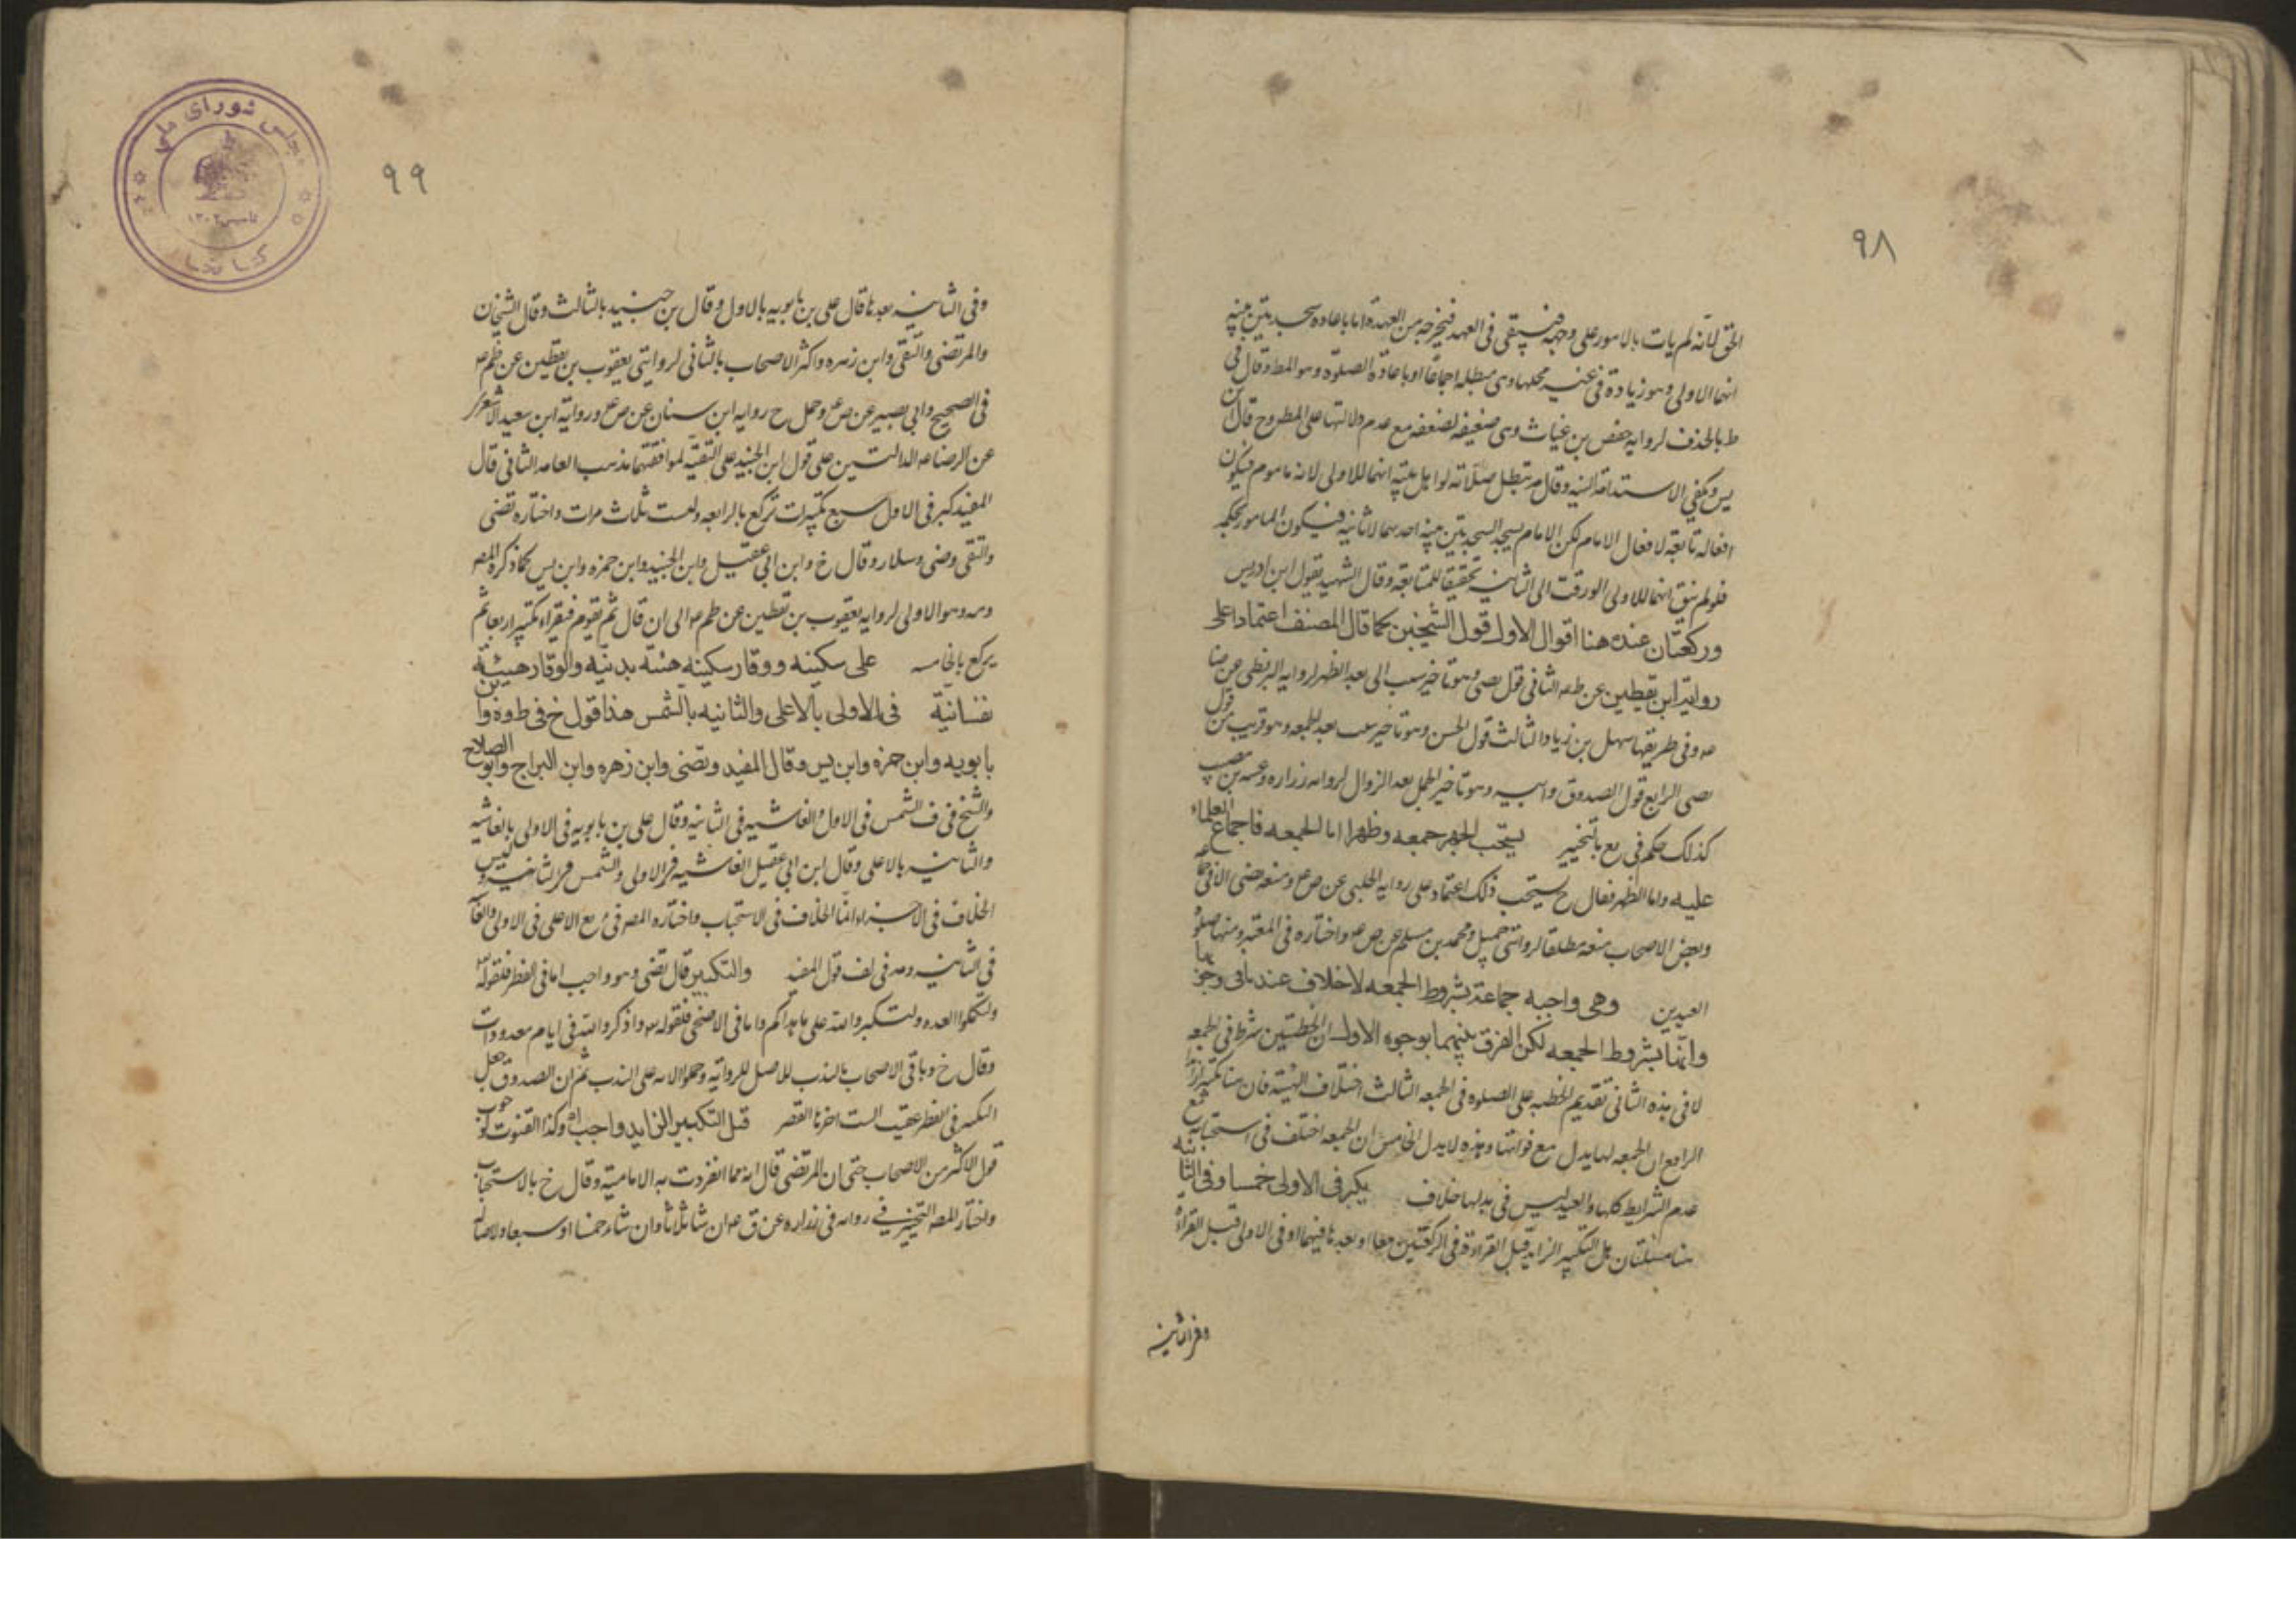 ٩٨
الحق لانه لم يات بالامور على وجهه فيبقى في العهد فيخرجه من العهدة اما باعاده سجدتين بنية
انها الاولى وهو زيادة في غير محلها وهى مبطله اجماعا او باعادة الصلوة وهو المط وقال في
ط بالحذف لروايه حفص بن غياث وهى ضعيفه لضعفه مع عدم دلالتها على المطروح قال ابن
يس ويكفي الاستدامة النيه وقال مه تبطل صلاته لو اهل بنية انهما للاولى لانه ماموم فيكون
افعاله تابعة لافعال الامام لكن الامام يسجد السجدتين بنية انهما للثانيه فيكون المامور بحكمه
فلو لم ينو انهما للاولى الى الثانيه تحقيقا للمتابعة وقال الشهيد بقول ابن ادريس
وركعتان عنده هنا اقوال الاول قول الشيخين كما قال المصنف اعتمادا على
رواية ابن يقطين عن الثانى قول وهو تاخير ست الى بعد الظهر لروايه البزنطى عن ضا
وفى طريقها سهل بن زياد الثالث قول الحسن وهو تاخير ست بعد الجمعه وهو قريب من قول
الرابع قول الصدوق وابيه وهو تاخير الكل بعد الزوال لروايه زراره
كذلك حكم فى يع بالتخيير يستحب الجهر جمعه وظهرا اما الجمعه فاجماع العلماء
عليه واما الظهر فقال خ يستحب ذلك اعتماد على روايه الحلبى عن ص ع ومنعه
وبعض الاصحاب منعه مطلقا لروايتى جميل ومحمد بن مسلم عن ص واختاره فى المعتبر ومنها صلوة
العيدين وهى واجبه جماعة بشروط الجمعه لا خلاف عندنا فى وجوبها
وانها بشروط الجمعه لكن الفرق بينهما بوجوه الاول ان الخطبتين شرط فى الجمعه
لا فى هذه الثانى تقديم الخطبه على الصلوه فى الجمعه الثالث اختلاف الهيئة فان هنا تكبيرا زايدا
الرابع ان الجمعه لها بدل مع فواتها وهذه لا بدل الخامس ان الجمعه اختلف فى استحبابها مع
عدم الشرايط كلها والعيد ليس فى بدلها خلاف يكبر فى الاولى خمسا وفى الثانيه
هنا مسئلتان هل التكبير الزايد قبل القراءة فى الركعتين معا او بعدها فيهما او فى الاولى قبل القراءة
وفى الثانيه
٩٩
وفى الثانيه بعدها قال على بن بابويه بالاول وقال بن جنيد بالثالث وقال الشيخان
والمرتضى والتقى وابن زهره واكثر الاصحاب بالثانى لروايتى يعقوب بن يقطين عن ظم ع
فى الصحيح وابى بصير عن ص ع وحمل خ روايه ابن سنان عن ص ع ورواية ابن سعيد الاشعرى
عن الرضا ع الدالتين على قول ابن الجنيد على التقية لموافقتهما مذهب العامه الثانى قال
المفيد كبر فى الاول سبع تكبيرات تركع بالرابعه ثلاث مرات واختاره تضى
والتقى وضى وسلار وقال خ وابن ابى عقيل وابن الجنيد وابن حمزه وابن يس كما ذكره المصه
ومه وهو الاولى لروايه يعقوب بن يقطين عن ظم ع الى ان قال ثم يقوم فيقراء ويكبر اربعا ثم
يركع بالخامسه على سكينه ووقار سكينه هيئه بدنيه والوقار هيئة
نفسانية فى الاولى بالاعلى والثانيه بالشمس هذا قول خ فى ط وة وابن
بابويه وابن حمزه وابن يس وقال المفيد وتضى وابن زهره وابن البراج وابو الصلاح
والشيخ فى ف الشمس فى الاول والغاشيه فى الثانيه وقال على بن بابويه فى الاولى بالغاشيه
والثانيه بالاعلى وقال ابن ابى عقيل الغاشيه فى الاولى والشمس فى الثانيه وليس
الخلاف فى الاجزاء انما الخلاف فى الاستحباب واختاره المصه فى يع الاعلى فى الاولى والغاشيه
فى الثانيه ومه فى لف قول المفيد والتكبير قال تضى وهو واجب اما فى الفطر فلقوله
ولتكملوا العده ولتكبروا الله على ما هداكم واما فى الاضحى فلقوله واذكروا الله فى ايام معدودات
وقال خ وباقى الاصحاب بالندب للاصل للرواية وحملوا الامر على الندب ثم ان الصدوق جعل
التكبير فى الفطر عقيب الست اخرها العصر قيل التكبير الزايد واجب وكذا القنوت وجوب
قول الاكثر من الاصحاب حتى ان المرتضى قال انه مما انفردت به الامامية وقال خ بالاستحباب
واختار المصه التخيير فى زراره عن ق ان شا ثلاثا وان شاء خمسا او سبعا ولاصالة
مجلس شوراى ملى
تاسيس ١٣٠٢
كتابخانه